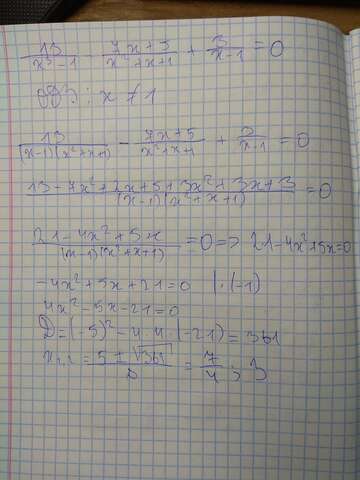 13/(x³-1) - (7x+5)/(x²+x+1) + 3/(x-1) = 0
ОДЗ: x ≠ 1
13/((x-1)(x²+x+1)) - (7x+5)/(x²+x+1) + 3/(x-1) = 0
(13-7x²+2x+5+3x²+3x+3)/((x-1)(x²+x+1)) = 0
(21-4x²+5x)/((x-1)(x²+x+1)) = 0 => 21-4x²+5x=0
-4x²+5x+21=0 |·(-1)
4x²-5x-21=0
D=(-5)²-4·4·(-21)=361
x₁,₂ = (5±√361)/8 = 7/4; 3